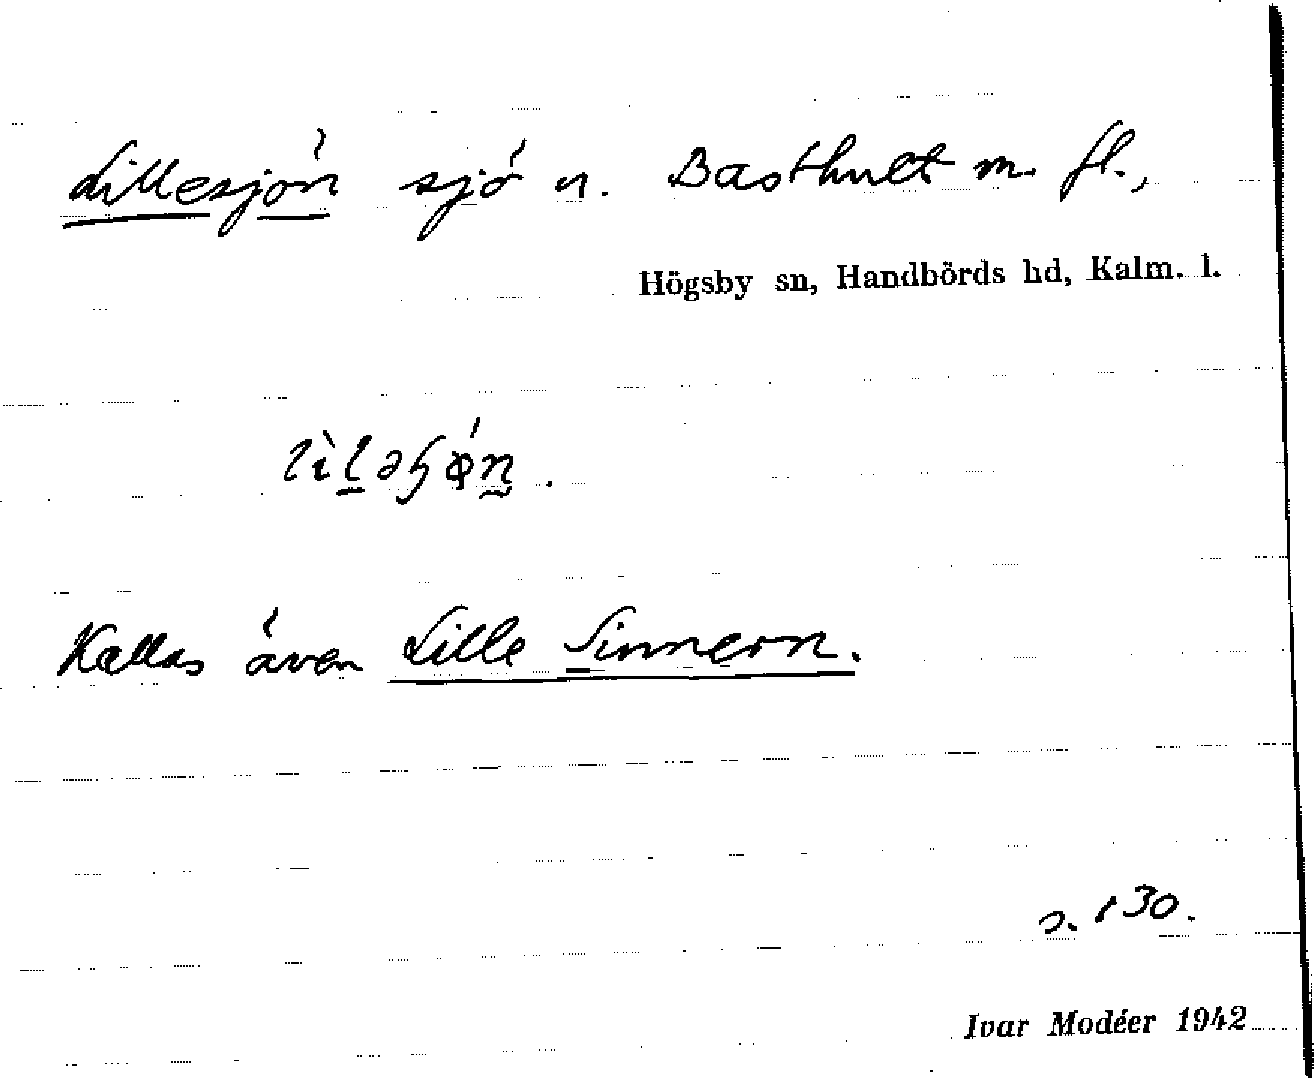 Lillesjön sjö n. Basthult m. fl.,
Högsby sn, Handbörds hd, Kalm. l.
Kallas även Lille Sinnern.
s. 130.
Ivar Modéer 1942